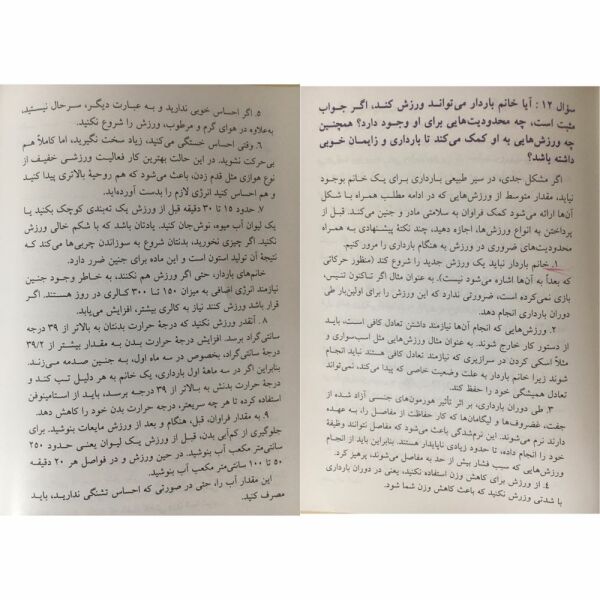 سؤال ۱۲ : آیا خانم باردار می‌تواند ورزش کند، اگر جواب
مثبت است، چه محدودیت‌هایی برای او وجود دارد؟ همچنین
چه ورزش‌هایی به او کمک می‌کند تا بارداری و زایمان خوبی
داشته باشد؟
اگر مشکل جدی، در سیر طبیعی بارداری برای یک خانم بوجود
نیاید، مقدار متوسط از ورزش‌هایی که در ادامه مطلب همراه با شکل
آن‌ها ارائه می‌شود کمک فراوان به سلامتی مادر و جنین می‌کند. قبل از
پرداختن به انواع ورزش‌ها، اجازه دهید، چند نکتهٔ پیشنهادی به همراه
محدودیت‌های ضروری در ورزش به هنگام بارداری را مرور کنیم.
۱. خانم باردار نباید یک ورزش جدید را شروع کند (منظور حرکاتی
که بعداً به آن‌ها اشاره می‌شود نیست). به عنوان مثال اگر تاکنون تنیس،
بازی نمی‌کرده است، ضرورتی ندارد که این ورزش را برای اولین‌بار طی
دوران بارداری انجام دهد.
۲. ورزش‌هایی که انجام آن‌ها نیازمند داشتن تعادل کافی است، باید
از دستور کار خارج شوند. به عنوان مثال ورزش‌هایی مثل اسب‌سواری و
مثلاً اسکی کردن در سرازیری که نیازمند تعادل کافی هستند نباید انجام
شوند زیرا خانم باردار به علت وضعیت خاصی که پیدا می‌کند، نمی‌تواند
تعادل همیشگی خود را حفظ کند.
۳. طی دوران بارداری، بر اثر تأثیر هورمون‌های جنسی آزاد شده از
جفت، غضروف‌ها و لیگامان‌ها که کار حفاظت از مفاصل را، به عهده
دارند نرم می‌شوند. این نرم‌شدگی باعث می‌شود که مفاصل نتوانند وظیفهٔ
خود را انجام داده، تا حدود زیادی ناپایدار هستند. بنابراین باید از انجام
ورزش‌هایی که سبب فشار بیش از حد به مفاصل می‌شوند، پرهیز کرد.
۴. از ورزش برای کاهش وزن استفاده نکنید، یعنی در دوران بارداری
با شدتی ورزش نکنید که باعث کاهش وزن شما شود.
۵. اگر احساس خوبی ندارید و به عبارت دیگر، سرحال نیستید،
به‌علاوه در هوای گرم و مرطوب، ورزش را شروع نکنید.
۶. وقتی احساس خستگی می‌کنید، زیاد سخت نگیرید، اما کاملاً هم
بی‌حرکت نشوید. در این حالت بهترین کار فعالیت ورزشی خفیف از
نوع هوازی مثل قدم زدن، باعث می‌شود که هم روحیهٔ بالاتری پیدا کنید
و هم احساس کنید انرژی لازم را بدست آورده‌اید.
۷. حدود ۱۵ تا ۳۰ دقیقه قبل از ورزش یک ته‌بندی کوچک بکنید یا
یک لیوان آب میوه، نوش‌جان کنید. یادتان باشد که با شکم خالی ورزش
نکنید. اگر چیزی نخورید، بدنتان شروع به سوزاندن چربی‌ها می‌کند که
نتیجهٔ آن تولید استون است و این ماده برای جنین ضرر دارد.
خانم‌های باردار، حتی اگر ورزش هم نکنند، به خاطر وجود جنین
نیازمند انرژی اضافی به میزان ۱۵۰ تا ۳۰۰ کالری در روز هستند. اگر
قرار باشد ورزش کنند نیاز به کالری بیشتر، افزایش می‌یابد.
۸. آنقدر ورزش نکنید که درجهٔ حرارت بدنتان به بالاتر از ۳۹ درجه
سانتی‌گراد برسد. افزایش درجهٔ حرارت بدن به مقدار بیشتر از ۳۹/۲
درجهٔ سانتی‌گراد، بخصوص در سه ماه اول، به جنین صدمه می‌زند.
بنابراین اگر در سه ماههٔ اول بارداری، یک خانم به هر دلیل تب کند و
درجهٔ حرارت بدنش به بالاتر از ۳۹ درجه برسد، باید از استامینوفن
استفاده کرده تا هر چه سریعتر، درجه حرارت بدن خود را کاهش دهد.
۹. به مقدار فراوان، قبل، هنگام و بعد از ورزش مایعات بنوشید. برای
جلوگیری از کم‌آبی بدن، قبل از ورزش یک لیوان یعنی حدود ۲۵۰
سانتی‌متر مکعب آب بنوشید. در حین ورزش و در فواصل هر ۲۰ دقیقه
۵۰ تا ۱۰۰ سانتی‌متر مکعب آب بنوشید.
این مقدار آب را، حتی در صورتی که احساس تشنگی ندارید، باید
مصرف کنید.